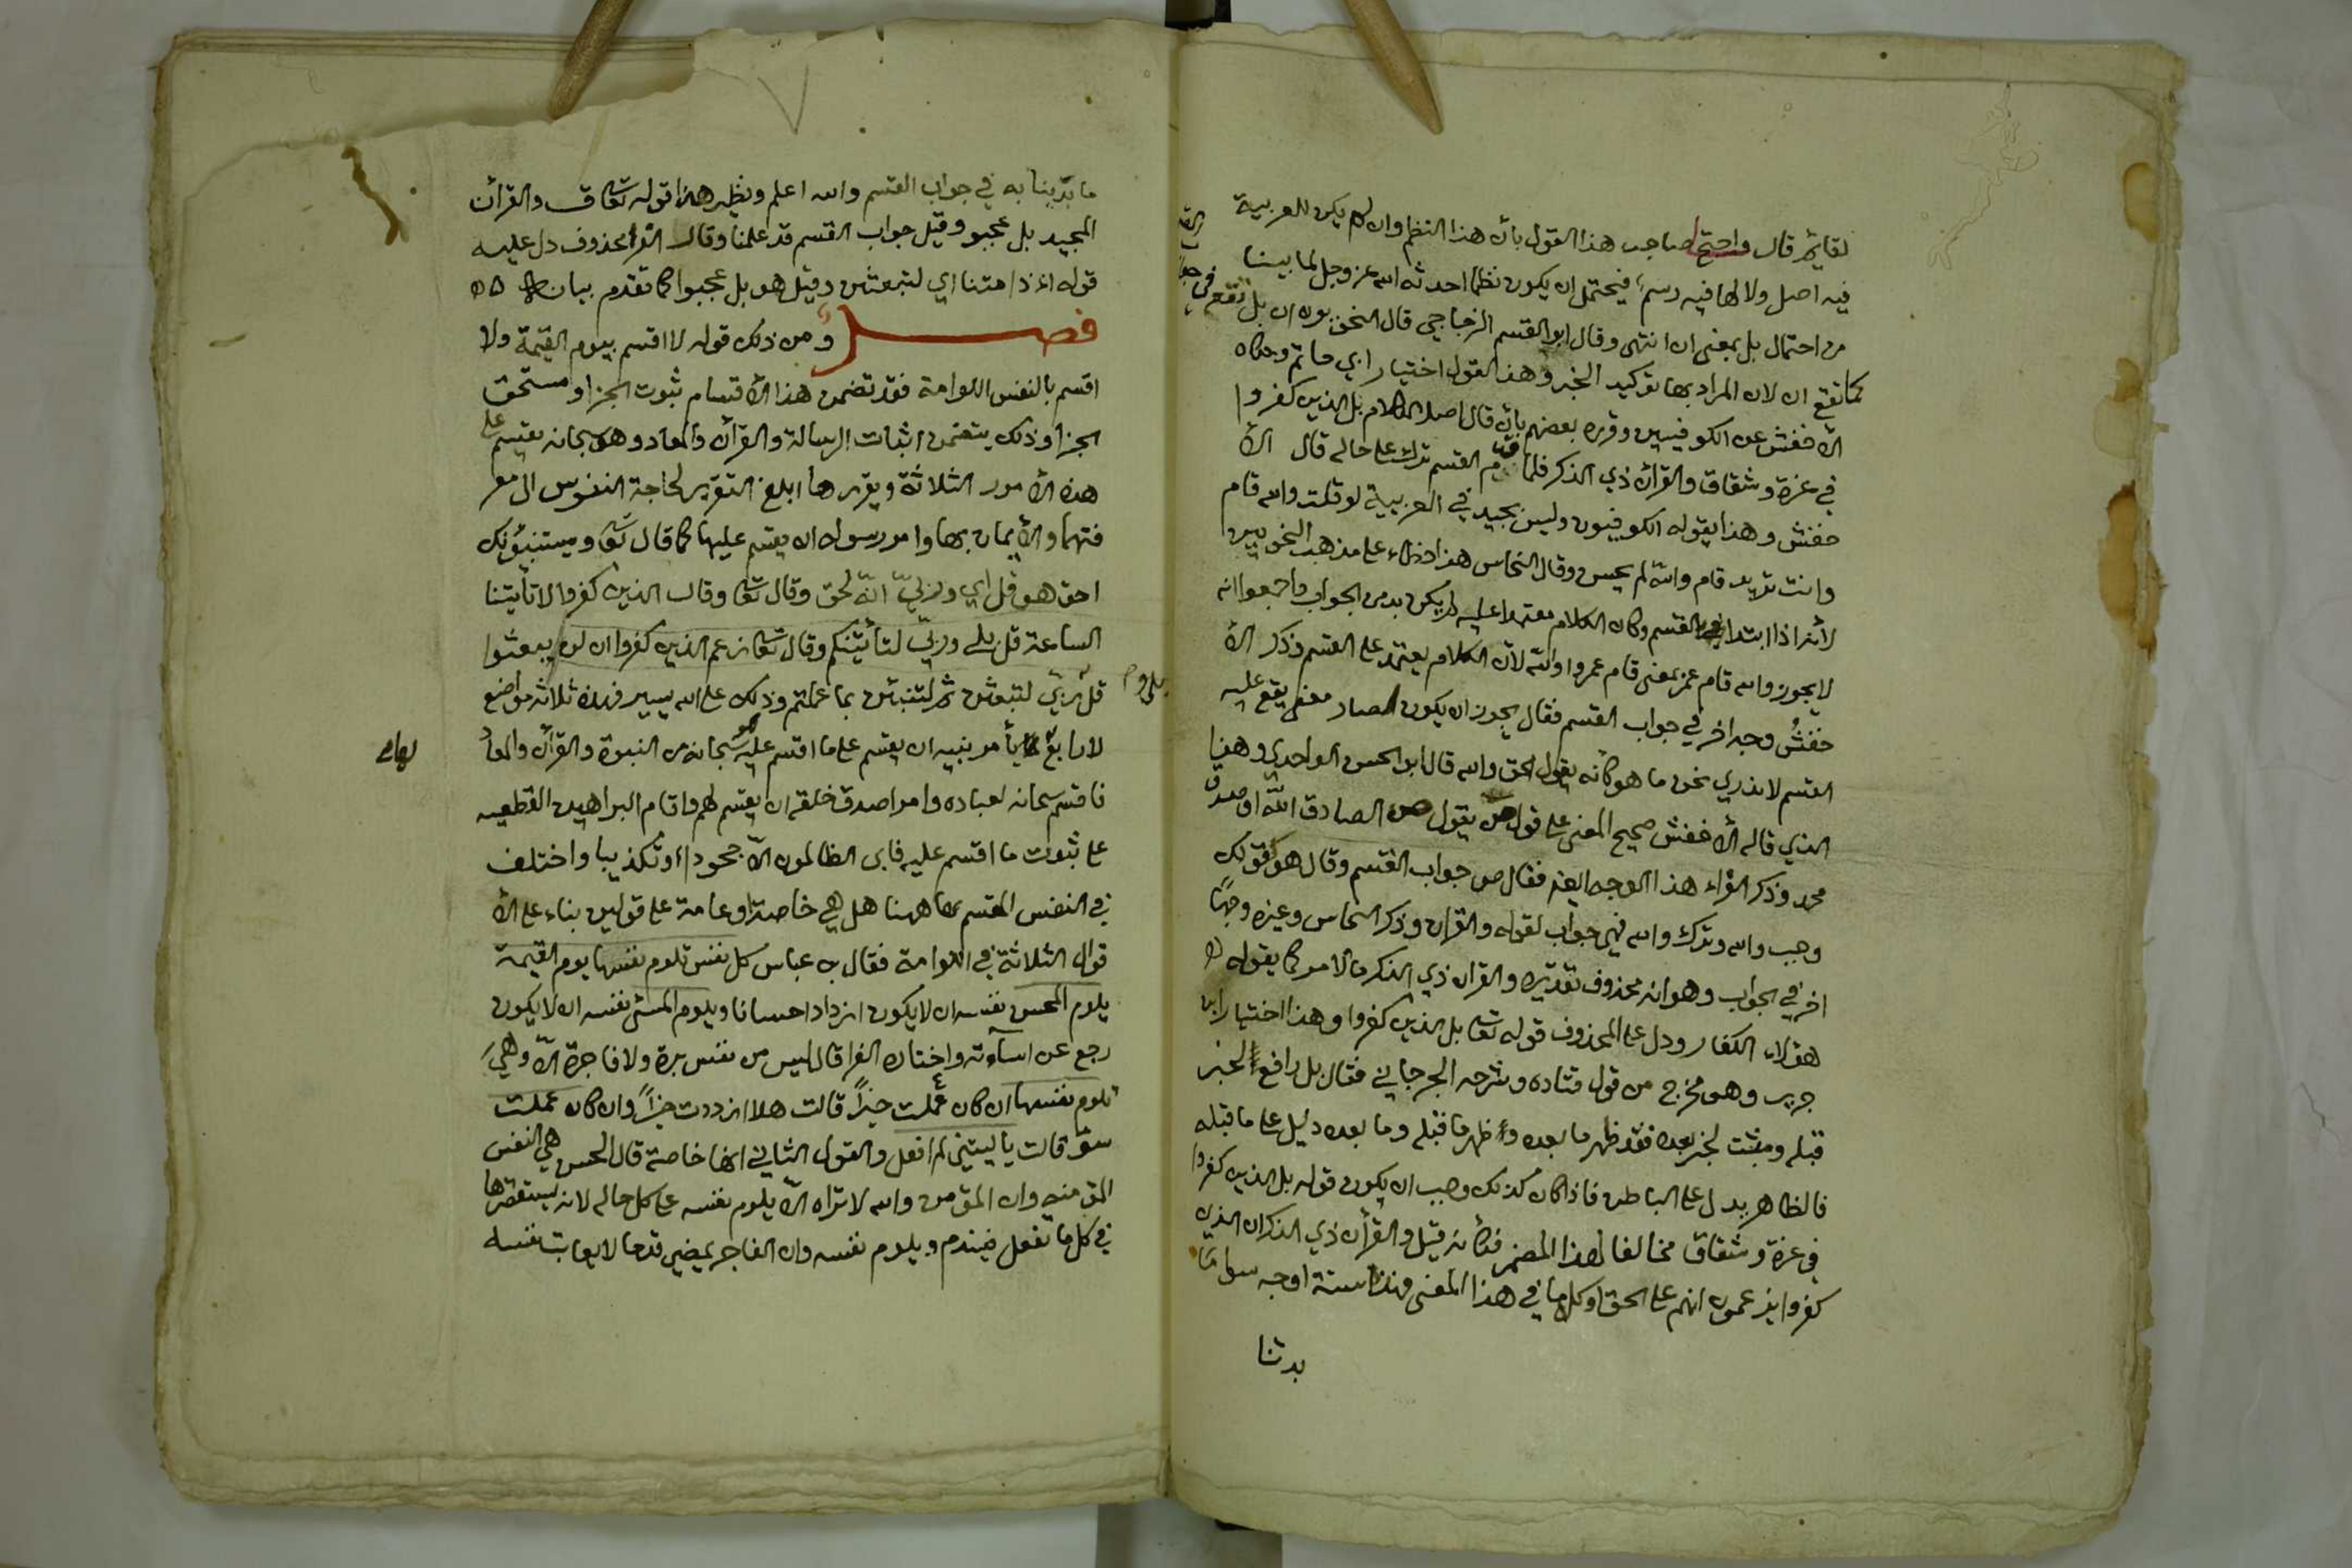 لقايم قال واحتج صاحب هذا القول بأن هذا النظم وان لم يكن للعربية
فيه اصل ولا لها فيه رسم فيحتمل ان يكون نظما احدثه الله عز وجل لما بينا
من احتمال بل بمعنى ان انتهى وقال ابو القسم الزجاجي قال النحويون ان بل تقع في جواب القسم
كما تقع ان لان المراد بها توكيد الخبر وهذا القول اختيار ابي حاتم وحكاه
الأخفش عن الكوفيين وقرره بعضهم بأن قال اصل الكلام بل الذين كفروا
في عزة وشقاق والقرآن ذي الذكر فلما قدم القسم ترك على حاله قال الأ
خفش وهذا يقوله الكوفيون وليس بجيد في العربية لو قلت والله قام
وانت تريد قام والله لم يحسن وقال النحاس هذا خطاء على مذهب النحويين
لأنه اذا ابتدا بالقسم وكان الكلام معتمدا عليه لم يكن بد من الجواب واجمعوا انه
لا يجوز والله قام عمرو بمعنى قام عمروا والله لأن الكلام يعتمد على القسم وذكر الأ
خفش وجه اخر في جواب القسم فقال يجوز ان يكون لصاد معنى يقع عليه
القسم لا ندري نحن ما هو كأنه يقول الحق والله قال ابو الحسن الواحدي وهذا
الذي قاله الأخفش صحيح المعنى على قول من يقول ص الصادق الله او صدق
محمد وذكر الفراء هذا الوجه ايضا فقال ص جواب القسم وقال هو كقولك
وجب والله وترك والله فهي جواب لقوله والقرآن وذكر النحاس وغيره وجهًا
اخر في الجواب وهو انه محذوف تقديره والقرآن ذي الذكر ما الامر كما يقوله
هؤلاء الكفار ودل على المحذوف قوله تعا بل الذين كفروا وهذا اختيار ابن
جرير وهو مخرج من قول قتاده وشرحه الجرجاني فقال بل رافع لخبر
قبله ومثبت لخبر بعده فقد ظهر ما بعده وظهر ما قبله وما بعده دليل على ما قبله
فالظاهر يدل على الباطن فاذا كان كذلك وجب ان يكون قوله بل الذين كفروا
في عزة وشقاق مخالفا لهذا المضمر فكأنه قيل والقرآن ذي الذكر ان الذين
كفروا يزعمون انهم على الحق او كل ما في هذا المعنى فهذه ستة اوجه سوى ما
بدئنا
ما بدينا به في جواب القسم والله اعلم ونظير هذا قوله تعا ق والقرآن
المجيد بل عجبوا وقيل جواب القسم قد علمنا وقال الفرا محذوف دل عليه
قوله اءذا متنا اي لتبعثن وقيل هو بل عجبوا كما تقدم بيانه
فصل ومن ذلك قوله لا اقسم بيوم القيمة ولا
اقسم بالنفس اللوامة فقد تضمن هذا الأقسام ثبوت الجزا ومستحق
الجزا وذلك يتضمن اثبات الرسالة والقرآن والمعاد وهو سبحانه يقسم على
هذه الأمور الثلاثة ويقررها ابلغ التقرير لحاجة النفوس الى معر
فتها والأيمان بها وامر رسوله ان يقسم عليها كما قال تعا ويستنبؤنك
احق هو قل اي وربيّ انّه لحق وقال تعا وقال الذين كفروا لا تأتينا
الساعة قل بلى وربيّ لتأتينكم وقال تعا زعم الذين كفروا ان لن يبعثوا
قل بلى وربي لتبعثن ثم لتنبئن بما عملتم وذلك على الله يسير فهذه ثلاثه مواضع
لا رابع لها يأمر نبيه ان يقسم على ما اقسم عليه هو سبحانه من النبوة والقرآن والمعاد
فاقسم سبحانه لعباده وامر اصدق خلقه ان يقسم لهم واقام البراهين القطعيه
على ثبوت ما اقسم عليه فابى الظالمون الّا جحودا وتكذيبا واختلف
في النفس المقسم بها ههنا هل هي خاصة او عامة على قولين بناء على الأ
قوال الثلاثة في اللوامة فقال بن عباس كل نفس تلوم نفسها يوم القيمة
يلوم المحسن نفسه ان لا يكون ازداد احسانا ويلوم المسئ نفسه ان لا يكون
رجع عن اسآءته واختاره الفرا قال ليس من نفس برة ولا فاجرة الّا وهي
تلوم نفسها ان كان عملت خيراً قالت هلا ازددت خيراً وان كان عملت
سوء قالت يا ليتني لم افعل والقول الثاني انها خاصة قال الحسن هي النفس
المؤمنه وان المؤمن والله لا تراه الّا يلوم نفسه على كل حاله لانه يستقصرها
في كل ما تفعل فيندم ويلوم نفسه وان الفاجر يمضي قدما لا يعاتب نفسه